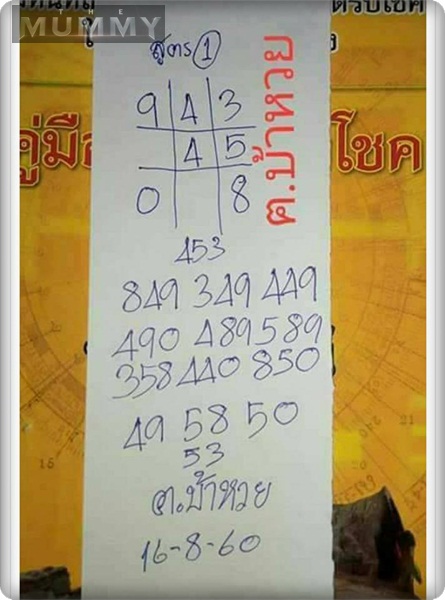 THE
MUMMY
สูตร 1
9 4 3
4 5
0 8
ต.ป้าหวย
453
849 349 449
490 489 589
358 440 850
49 58 50
53
ต.ป้าหวย
16-8-60
คู่มือ
โชค